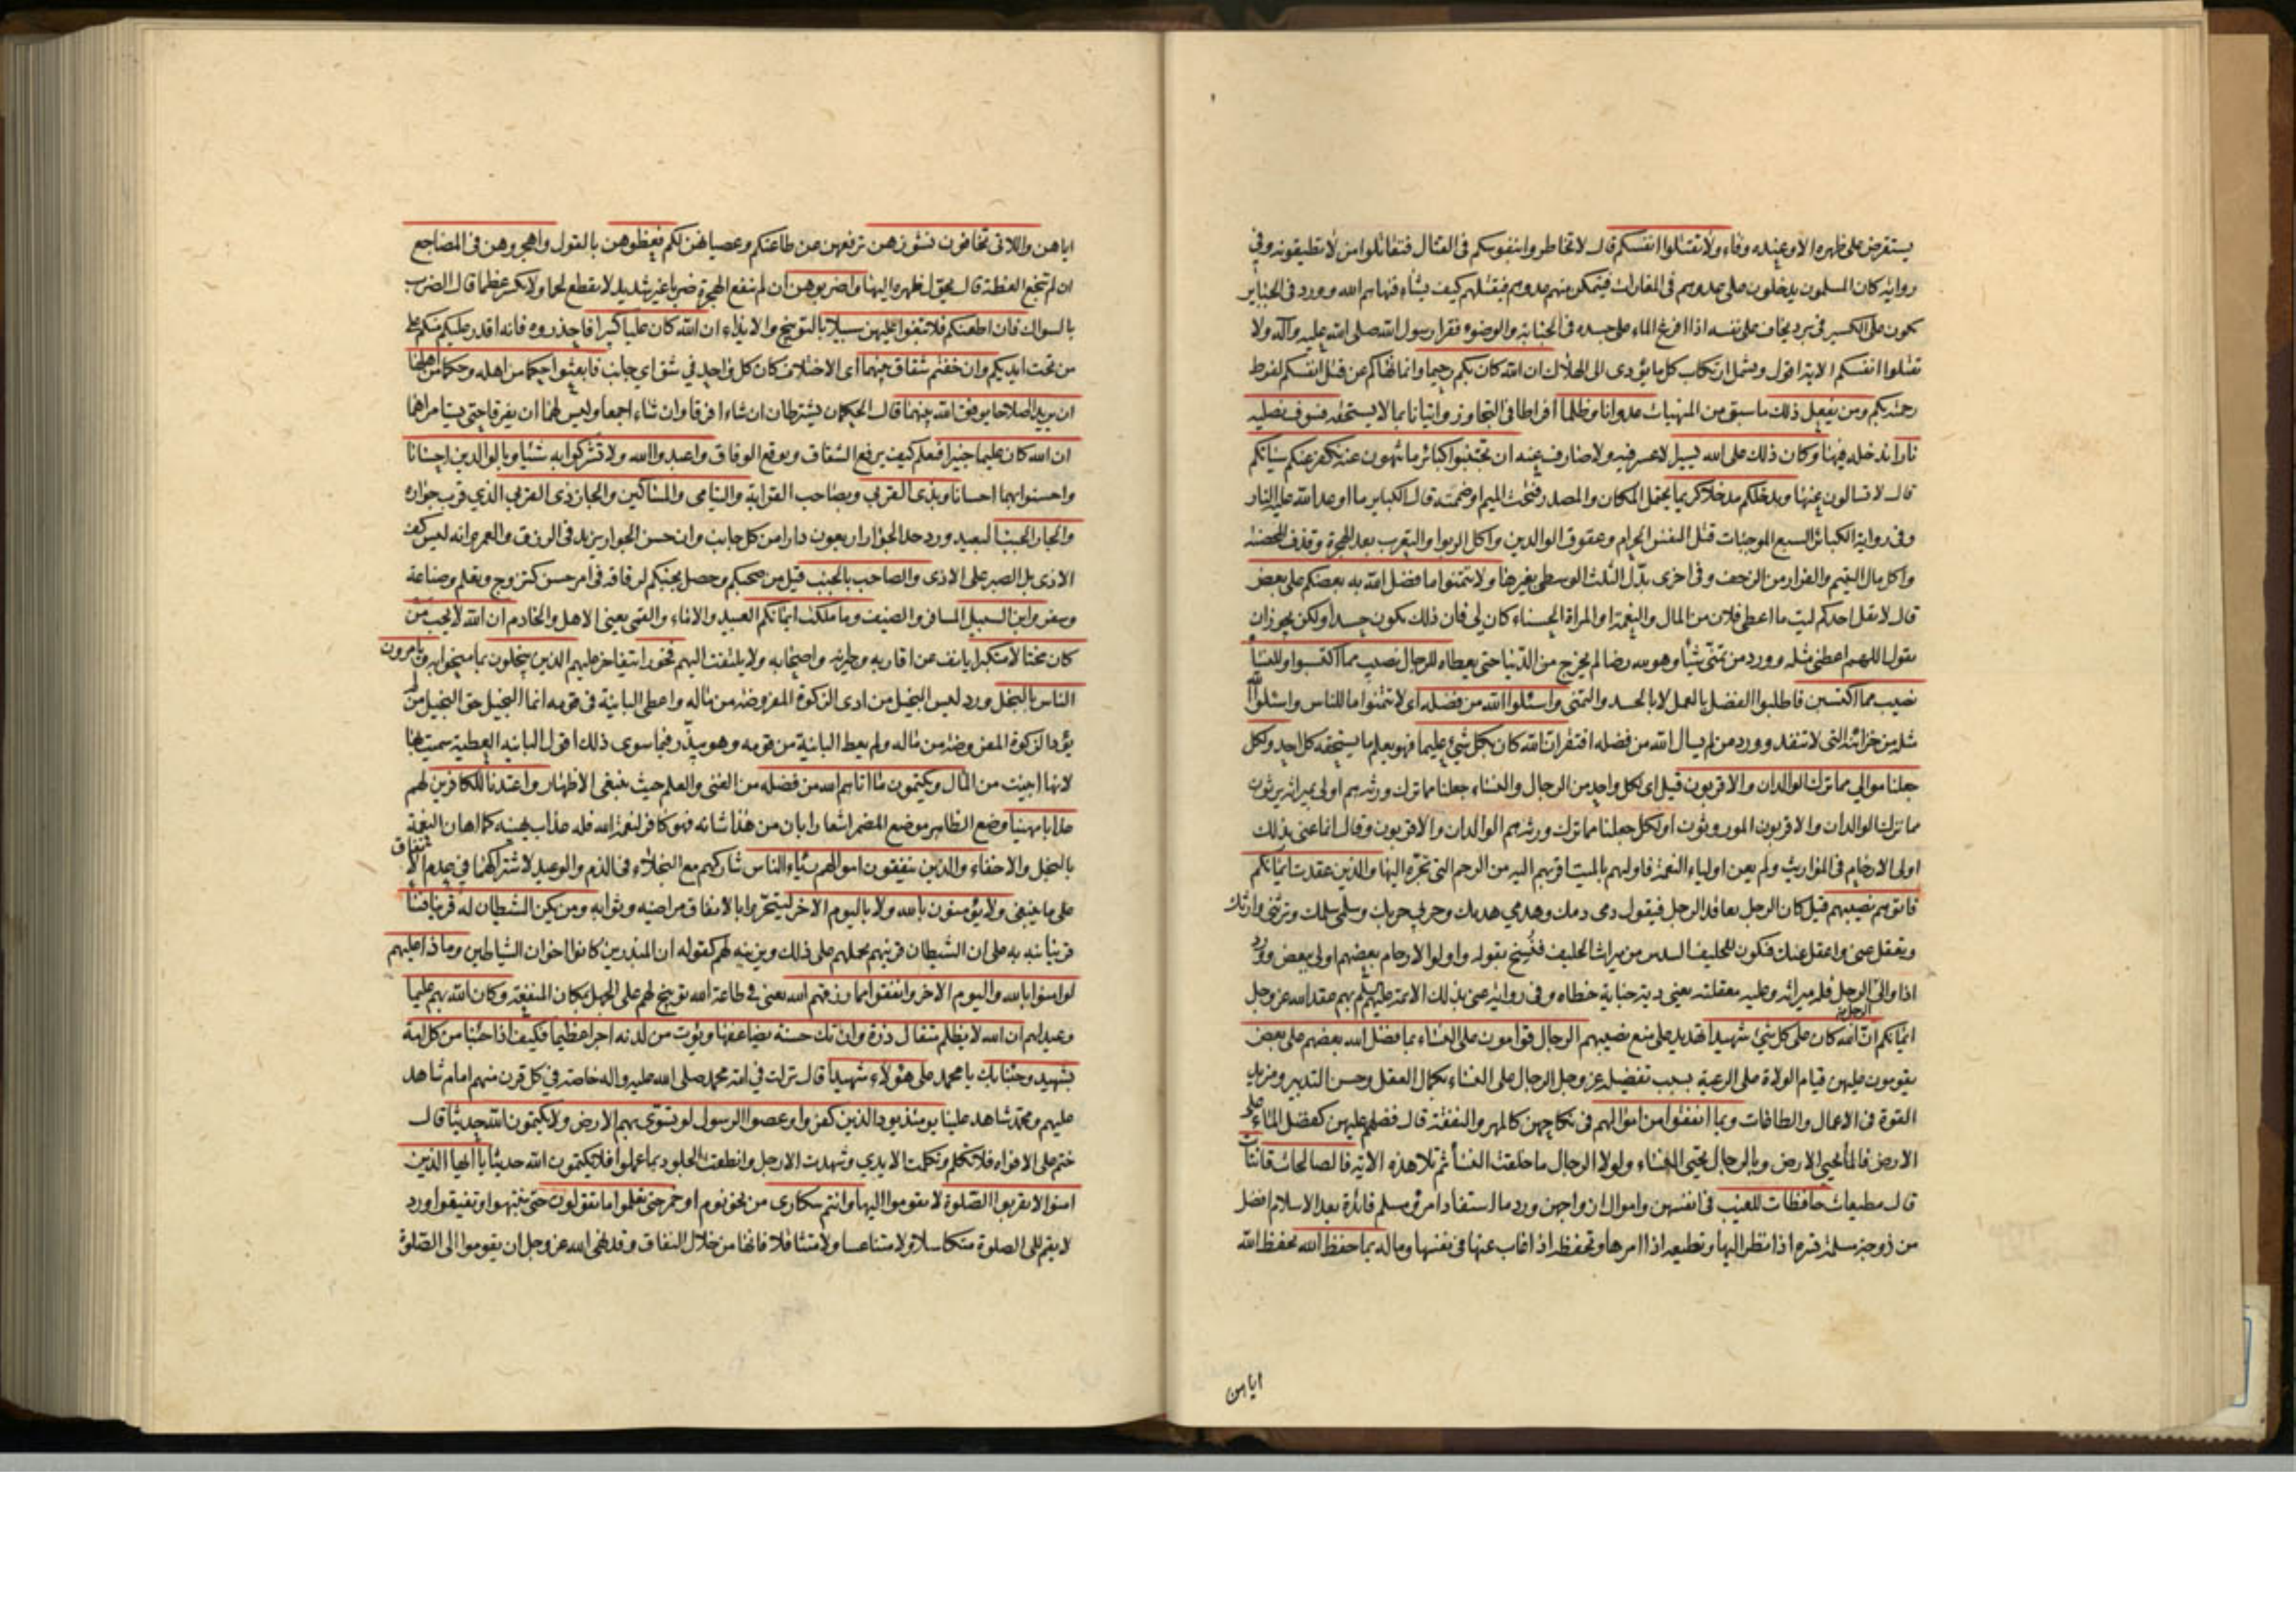 يستقرض على ظهره الا وعنده وفاء ولا تقتلوا انفسكم قال لا تخاطروا بنفوسكم في القتال فتقاتلوا من لا تطيقونه وفي
رواية كان المسلمون يدخلون على عدوهم في المغارات فيتمكن منهم عدوهم فيقتلهم كيف يشاء فنهاهم الله وورد في الجباير
تكون على الكسير في برد يخاف على نفسه اذا افرغ الماء على جسده في الجنابة والوضوء فقرا رسول الله صلى الله عليه وآله ولا
تقتلوا انفسكم الاية اقول ويشمل ارتكاب كل ما يؤدى الى الهلاك ان الله كان بكم رحيما وانما نهاكم عن قتل انفسكم لفرط
رحمته بكم ومن يفعل ذلك ما سبق من المنهيات عدوانا وظلما افراطا في التجاوز واتيانا بما لا يستحقه فسوف نصليه
نارا ندخله فيها وكان ذلك على الله يسيرا لا عسر فيه ولا صارف عنه ان تجتنبوا كبائر ما تنهون عنه نكفر عنكم سيئاتكم
قال لا تسالون عنها وندخلكم مدخلا كريما يحتمل المكان والمصدر فتحت الميم او ضمت قال الكباير ما اوعد الله عليه النار
وفي رواية الكبائر السبع الموجبات قتل النفس الحرام وعقوق الوالدين واكل الربوا والتعرب بعد الهجرة وقذف المحصنة
واكل مال اليتيم والفرار من الزحف وفي اخرى بدل الثلث الوسطى بغيرها ولا تتمنوا ما فضل الله به بعضكم على بعض
قال لا يقل احدكم ليت ما اعطى فلان من المال والنعمة او المراة الحسناء كان لي فان ذلك يكون حسدا ولكن يجوز ان
يقول اللهم اعطني مثله وورد من تمنى شيئا وهو لله رضا لم يخرج من الدنيا حتى يعطاه للرجال نصيب مما اكتسبوا وللنساء
نصيب مما اكتسبن فاطلبوا الفضل بالعمل لا بالحسد والتمني واسئلوا الله من فضله اى لا تتمنوا ما للناس واسئلوا الله
مثله من خزائنه التي لا تنفد وورد من لم يسال الله من فضله افتقر ان الله كان بكل شيء عليما فهو يعلم ما يستحقه كل احد ولكل
جعلنا موالي مما ترك الوالدان والاقربون قيل اى لكل واحد من الرجال والنساء جعلنا مما ترك ورثة هم اولى بميراثه يرثون
مما ترك الوالدان والاقربون الموروثون او لكل جعلنا مما ترك ورثة هم الوالدان والاقربون وقال انما عنى بذلك
اولى الارحام في المواريث ولم يعن اولياء النعمة فاوليهم بالميت اقربهم اليه من الرحم التي تجره اليها والذين عقدت ايمانكم
فاتوهم نصيبهم قيل كان الرجل يعاقد الرجل فيقول دمى دمك وهدمي هدمك وحربي حربك وسلمى سلمك وترثنى وارثك
وتعقل عنى واعقل عنك فيكون للحليف السدس من ميراث الحليف فنسخ بقوله واولوا الارحام بعضهم اولى ببعض وورد
اذا والى الرجل الرجل فله ميراثه وعليه معقلته يعني دية جناية خطاه وفي رواية عنى بذلك الائمة عليهم السلم بهم عقد الله عز وجل
ايمانكم ان الله كان على كل شيء شهيدا تهديد على منع نصيبهم الرجال قوامون على النساء بما فضل الله بعضهم على بعض
يقومون عليهن قيام الولاة على الرعية بسبب تفضيله عز وجل الرجال على النساء بكمال العقل وحسن التدبير ومزيد
القوة في الاعمال والطاعات وبما انفقوا من اموالهم في نكاحهن كالمهر والنفقة قال فضلهم عليهن كفضل الماء على
الارض فالماء يحيي الارض وبالرجال يحيى النساء ولولا الرجال ما خلقت النساء ثم تلا هذه الاية فالصالحات قانتات
قال مطيعات حافظات للغيب في انفسهن واموال ازواجهن ورد ما استفاد امرؤ مسلم فائدة بعد الاسلام افضل
من زوجة مسلمة تسره اذا نظر اليها وتطيعه اذا امرها وتحفظه اذا غاب عنها في نفسها وماله بما حفظ الله بحفظ الله
اياهن
اياهن واللاتي تخافون نشوزهن ترفعهن عن طاعتكم وعصيانهن لكم فعظوهن بالقول واهجروهن في المضاجع
ان لم تنجع العظة قال يحول ظهره اليها واضربوهن ان لم تنفع الهجرة ضربا غير شديد لا يقطع لحما ولا يكسر عظما قال الضرب
بالسواك فان اطعنكم فلا تبغوا عليهن سبيلا بالتوبيخ والايذاء ان الله كان عليا كبيرا فاحذروه فانه اقدر عليكم منكم على
من تحت ايديكم وان خفتم شقاق بينهما اى الاختلاف كان كل واحد في شق اي جانب فابعثوا حكما من اهله وحكما من اهلها
ان يريدا اصلاحا يوفق الله بينهما قال الحكمان يشترطان ان شاءا فرقا وان شاءا جمعا وليس لهما ان يفرقا حتى يستامراهما
ان الله كان عليما خبيرا فيعلم كيف يرفع الشقاق ويوقع الوفاق واعبدوا الله ولا تشركوا به شيئا وبالوالدين احسانا
واحسنوا بهما احسانا وبذى القربي وبصاحب القرابة واليتامى والمساكين والجار ذى القربي الذي قرب جواره
والجار الجنب البعيد ورد حد الجوار اربعون دارا من كل جانب وان حسن الجوار يزيد في الرزق والعمر وانه ليس كف
الاذى بل الصبر على الاذى والصاحب بالجنب قيل من صحبكم وحصل بجنبكم لرفاقة في امر حسن كتزوج وتعلم وصناعة
وسفر وابن السبيل المسافر والضيف وما ملكت ايمانكم العبيد والاماء والقمى يعني الاهل والخادم ان الله لا يحب من
كان مختالا متكبرا يانف عن اقاربه وجيرانه واصحابه ولا يلتفت اليهم فخورا يتفاخر عليهم الذين يبخلون بما منحوا به ويامرون
الناس بالبخل ورد ليس البخيل من ادى الزكوة المفروضة من ماله واعطى البائنة في قومه انما البخيل حق البخيل من لم
يؤد الزكوة المفروضة من ماله ولم يعط البائنة من قومه وهو يبذر فيما سوى ذلك اقول البائنة العطية سميت بها
لانها ابينت من المال ويكتمون ما اتاهم الله من فضله من الغنى والعلم حيث ينبغي الاظهار واعتدنا للكافرين لهم
عذابا مهينا وضع الظاهر موضع المضمر اشعارا بان من هذا شانه فهو كافر لنعمة الله فله عذاب يهينه كما اهان النعمة
بالبخل والاخفاء والذين ينفقون اموالهم رئاء الناس شاركهم مع البخلاء في الذم والوعيد لاشتراكهما في عدم الانفاق
على ما ينبغى ولا يؤمنون بالله ولا باليوم الاخر ليتحروا بالانفاق مراضيه وثوابه ومن يكن الشيطان له قرينا فساء
قرينا نبه به على ان الشيطان قرينهم يحملهم على ذلك ويزينه لهم كقوله ان المبذرين كانوا اخوان الشياطين وماذا عليهم
لو امنوا بالله واليوم الاخر وانفقوا مما رزقهم الله يعنى في طاعة الله توبيخ لهم على الجهل بمكان المنفعة وكان الله بهم عليما
وعيد لهم ان الله لا يظلم مثقال ذرة وان تك حسنة يضاعفها ويؤت من لدنه اجرا عظيما فكيف اذا جئنا من كل امة
بشهيد وجئنا بك يا محمد على هؤلاء شهيدا قال نزلت في امة محمد صلى الله عليه واله خاصة في كل قرن منهم امام شاهد
عليهم ومحمد شاهد علينا يومئذ يود الذين كفروا وعصوا الرسول لو تسوى بهم الارض ولا يكتمون الله حديثا قال
ختم على الافواه فلا تكلم وتكلمت الايدي وشهدت الارجل وانطقت الجلود بما عملوا فلا يكتمون الله حديثا يا ايها الذين
امنوا لا تقربوا الصلوة لا تقوموا اليها وانتم سكارى من نحو نوم او خمر حتى تعلموا ما تقولون حتى تنتبهوا وتفيقوا ورد
لا تقم الى الصلوة متكاسلا ولا متناعسا ولا متثاقلا فانها من خلال النفاق وقد نهى الله عز وجل ان يقوموا الى الصلوة